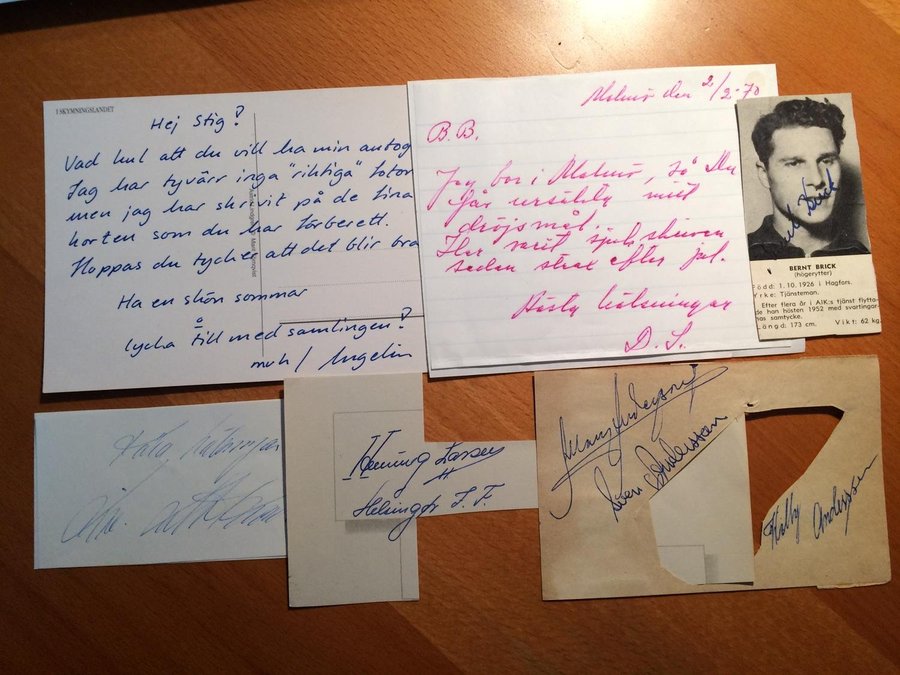 I SKYMNINGSLANDET
Hej Stig!
Vad kul att du vill ha min autog
Jag har tyvärr inga "riktiga" foton
men jag har skrivit på de fina
korten som du har förberett.
Hoppas du tycker att det blir bra
Ha en skön sommar
å
lycka till med samlingen!
mvh / Ingelin
Malmö den 2/2-70
B.B.
Jag bor i Malmö, så Du
får ursäkta mitt
dröjsmål.
Har varit sjukskriven
sedan strax efter jul.
Hälsningar
D. S.
BERNT BRICK
(högerytter)
Född: 1.10.1926 i Hagfors.
Yrke: Tjänsteman.
Efter flera år i AIK:s tjänst flytta-
de han hösten 1952 med svartingar-
nas samtycke.
Längd: 173 cm. Vikt: 62 kg.
Henning
Helsingör I.F.
Sven Andersson
Andersson